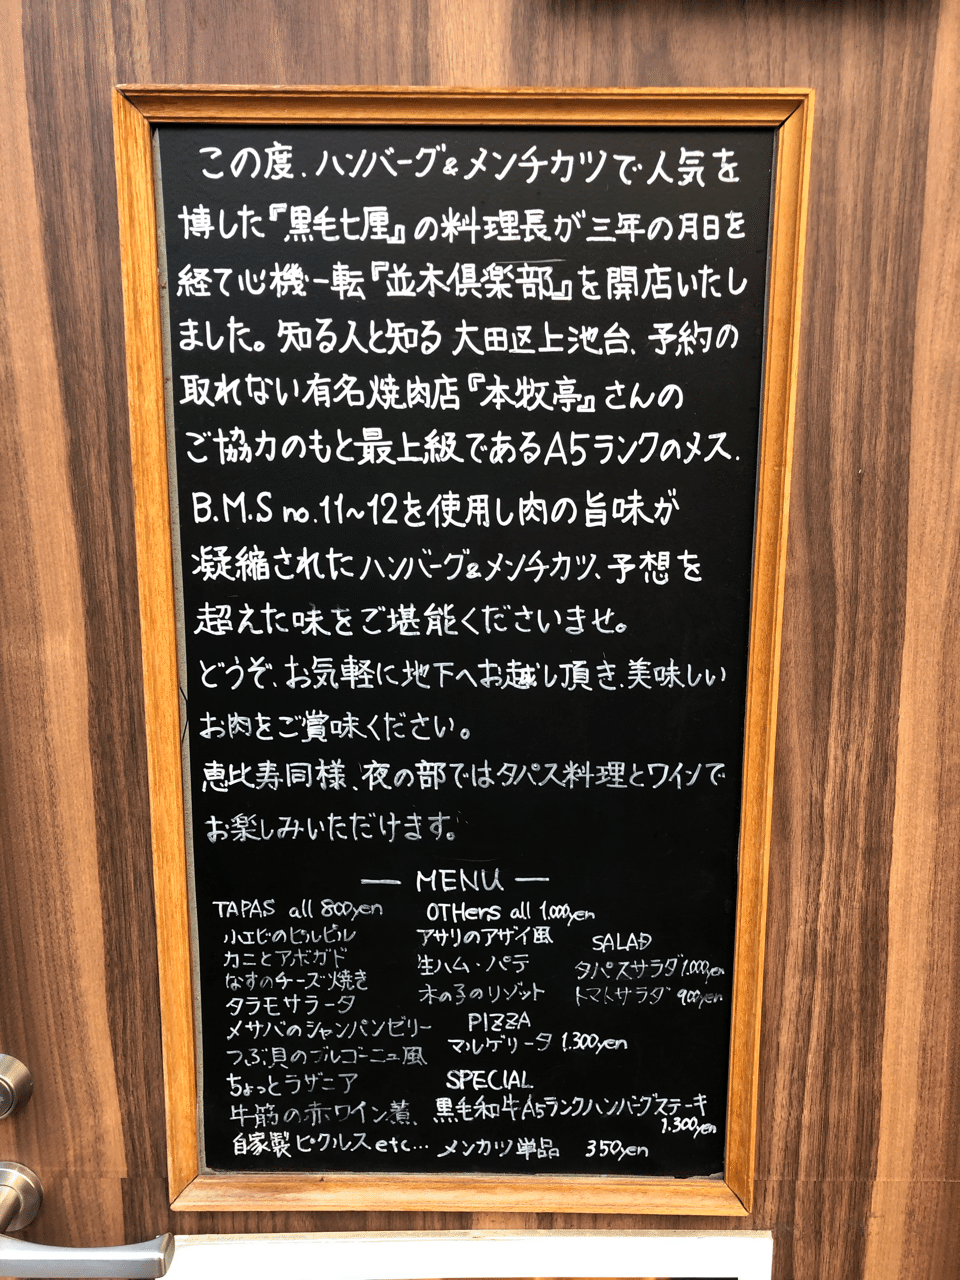 この度、ハンバーグ&メンチカツで人気を
博した『黒毛七厘』の料理長が三年の月日を
経て心機一転『並木倶楽部』を開店いたし
ました。知る人と知る 大田区上池台、予約の
取れない有名焼肉店『本牧亭』さんの
ご協力のもと最上級であるA5ランクのメス、
B.M.S no.11~12を使用し肉の旨味が
凝縮されたハンバーグ&メンチカツ、予想を
超えた味をご堪能くださいませ。
どうぞ、お気軽に地下へお越し頂き、美味しい
お肉をご賞味ください。
恵比寿同様、夜の部ではタパス料理とワインで
お楽しみいただけます。
— MENU —
TAPAS all 800yen
小エビのピルピル
カニとアボガド
なすのチーズ焼き
タラモサラータ
メサバのシャンパンゼリー
つぶ貝のブルゴーニュ風
ちょっとラザニア
牛筋の赤ワイン煮、
自家製ピクルスetc…
OTHers all 1.000yen
アサリのアザイ風
生ハム・パテ
木の子のリゾット
SALAD
タパスサラダ1.000yen
トマトサラダ 900yen
PIZZA
マルゲリータ 1.300yen
SPECIAL
黒毛和牛A5ランクハンバーグステーキ
1.300yen
メンカツ単品 350yen